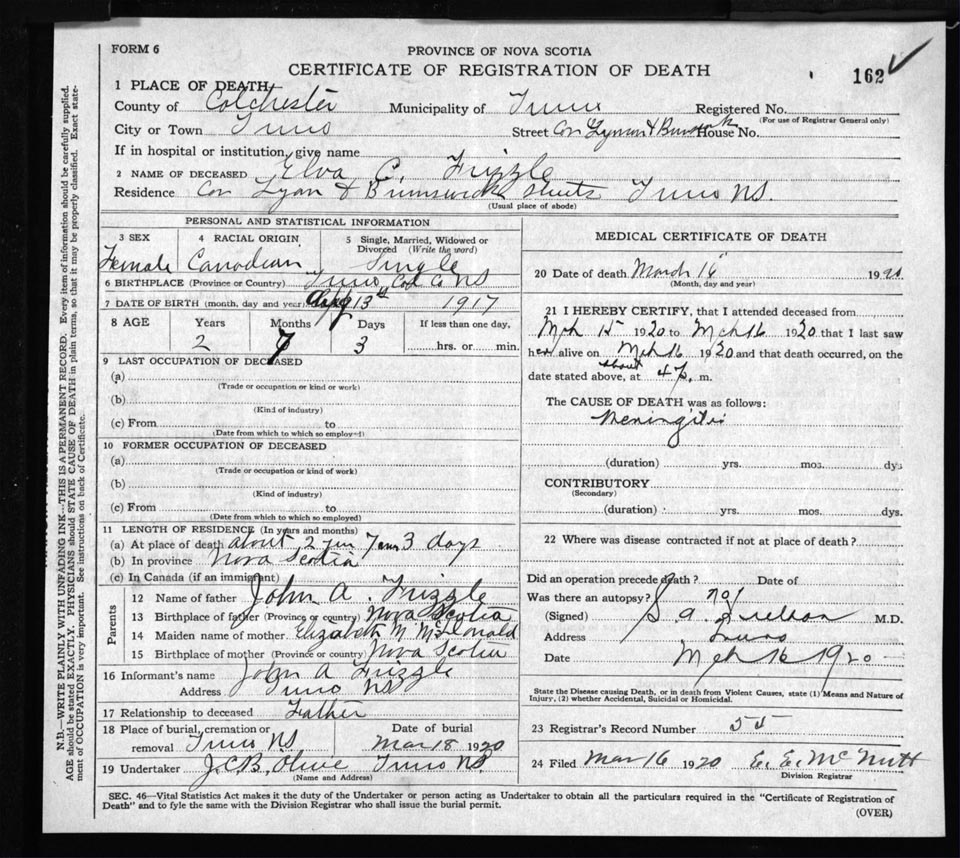 FORM 6
PROVINCE OF NOVA SCOTIA
CERTIFICATE OF REGISTRATION OF DEATH
162
1 PLACE OF DEATH
County of Colchester Municipality of Truro Registered No.
(For use of Registrar General only)
City or Town Truro Street Cor Lyman & House No.
If in hospital or institution, give name
2 NAME OF DECEASED Elva C. Frizzle
Residence Cor Lyon & Brunswick Truro NS.
(Usual place of abode)
PERSONAL AND STATISTICAL INFORMATION
3 SEX 4 RACIAL ORIGIN 5 Single, Married, Widowed or Divorced (Write the word)
Female Canadian Single
6 BIRTHPLACE (Province or Country) Truro, Col Co NS
7 DATE OF BIRTH (month, day and year) 13th 1917
8 AGE Years Months Days If less than one day,
2 7 3 hrs. or min.
9 LAST OCCUPATION OF DECEASED
(a)
(Trade or occupation or kind or work)
(b)
(Kind of industry)
(c) From to
(Date from which to which so employed)
10 FORMER OCCUPATION OF DECEASED
(a)
(Trade or occupation or kind of work)
(b)
(Kind of industry)
(c) From to
(Date from which to which so employed)
11 LENGTH OF RESIDENCE (In years and months)
(a) At place of death about 2 yrs 7 ms 3 days
(b) In province Nova Scotia
(c) In Canada (if an immigrant)
Parents
12 Name of father John A. Frizzle
13 Birthplace of father (Province or country) Nova Scotia
14 Maiden name of mother Elizabeth M. McDonald
15 Birthplace of mother (Province or country) Nova Scotia
16 Informant's name John A Frizzle
Address Truro NS
17 Relationship to deceased Father
18 Place of burial, cremation or removal Truro NS Date of burial Mar 18 1920
19 Undertaker J.C.B. Olive Truro NS
(Name and Address)
MEDICAL CERTIFICATE OF DEATH
20 Date of death March 16 1920
(Month, day and year)
21 I HEREBY CERTIFY, that I attended deceased from
Mch 15 1920 to Mch 16 1920 that I last saw
her alive on Mch 16 1920 and that death occurred, on the
date stated above, at about 4 p. m.
The CAUSE OF DEATH was as follows:
Meningitis
(duration) yrs. mos. dys
CONTRIBUTORY
(Secondary)
(duration) yrs. mos. dys.
22 Where was disease contracted if not at place of death?
Did an operation precede death? Date of
Was there an autopsy? no
(Signed) S. A. M.D.
Address Truro
Date Mch 16 1920
State the Disease causing Death, or in death from Violent Causes, state (1) Means and Nature of
Injury, (2) whether Accidental, Suicidal or Homicidal.
23 Registrar's Record Number 55
24 Filed Mar 16 1920 E. E. McNutt
Division Registrar
SEC. 46—Vital Statistics Act makes it the duty of the Undertaker or person acting as Undertaker to obtain all the particulars required in the "Certificate of Registration of
Death" and to fyle the same with the Division Registrar who shall issue the burial permit.
(OVER)
N.B.—WRITE PLAINLY WITH UNFADING INK—THIS IS A PERMANENT RECORD. Every item of information should be carefully supplied.
AGE should be stated EXACTLY. PHYSICIANS should STATE CAUSE OF DEATH in plain terms, so that it may be properly classified. Exact state-
ment of OCCUPATION is very important. See instructions on back of Certificate.